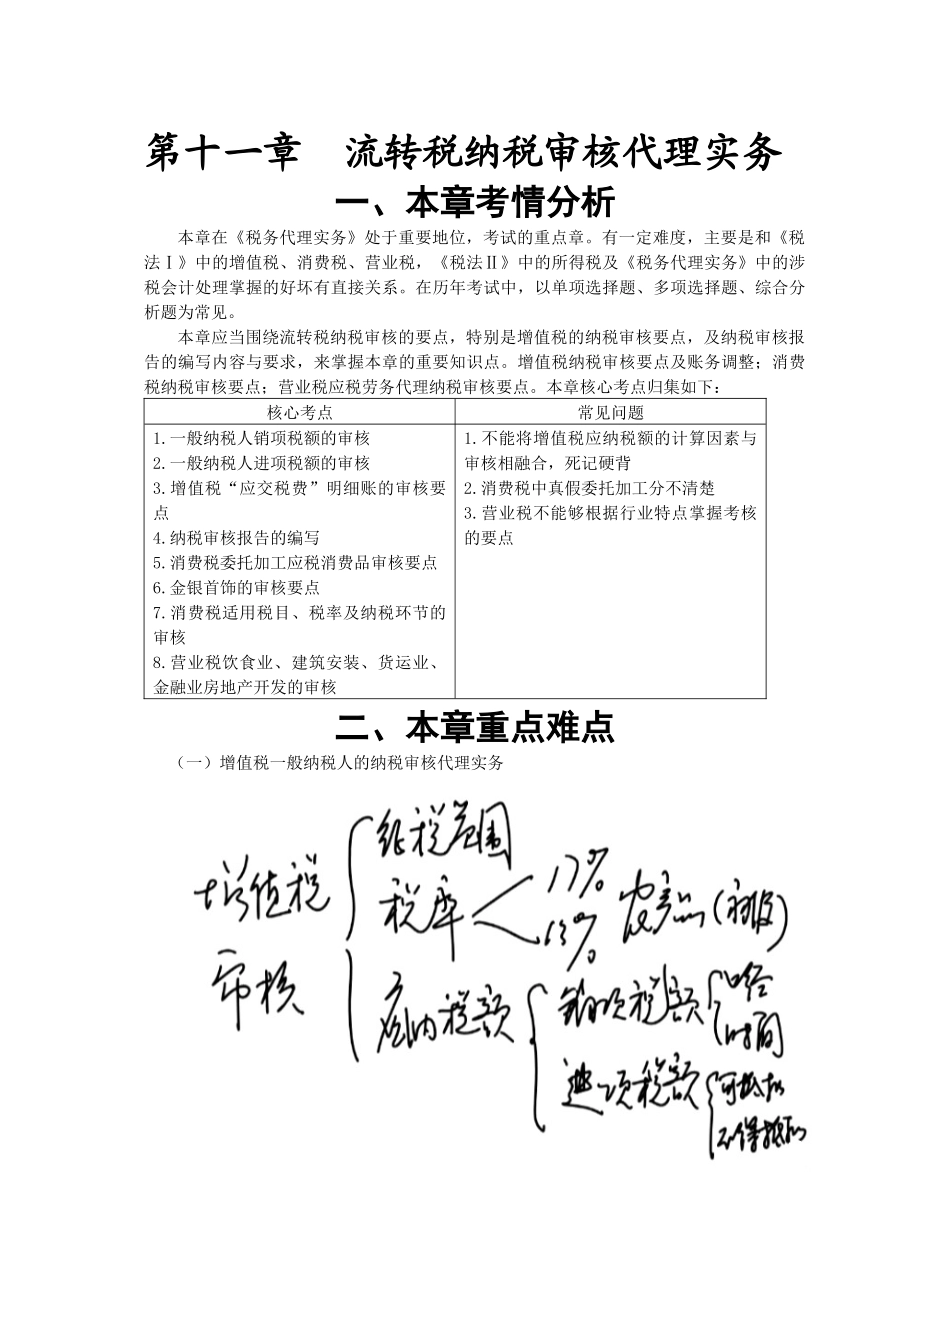 第十一章　流转税纳税审核代理实务
一、本章考情分析
本章在《税务代理实务》处于重要地位，考试的重点章。有一定难度，主要是和《税
法Ⅰ》中的增值税、消费税、营业税，《税法Ⅱ》中的所得税及《税务代理实务》中的涉
税会计处理掌握的好坏有直接关系。在历年考试中，以单项选择题、多项选择题、综合分
析题为常见。
本章应当围绕流转税纳税审核的要点，特别是增值税的纳税审核要点，及纳税审核报
告的编写内容与要求，来掌握本章的重要知识点。增值税纳税审核要点及账务调整；消费
税纳税审核要点；营业税应税劳务代理纳税审核要点。本章核心考点归集如下：
核心考点
1.一般纳税人销项税额的审核
2.一般纳税人进项税额的审核
3.增值税“应交税费”明细账的审核要
点
4.纳税审核报告的编写
5.消费税委托加工应税消费品审核要点
6.金银首饰的审核要点
7.消费税适用税目、税率及纳税环节的
审核
8.营业税饮食业、建筑安装、货运业、
金融业房地产开发的审核
常见问题
1.不能将增值税应纳税额的计算因素与
审核相融合，死记硬背
2.消费税中真假委托加工分不清楚
3.营业税不能够根据行业特点掌握考核
的要点
二、本章重点难点
（一）增值税一般纳税人的纳税审核代理实务
增值税
审核
征税范围
税率
17%
13% 农产品(初级)
应纳税额
销项税额
价格
时间
进项税额
可抵扣
不得抵扣